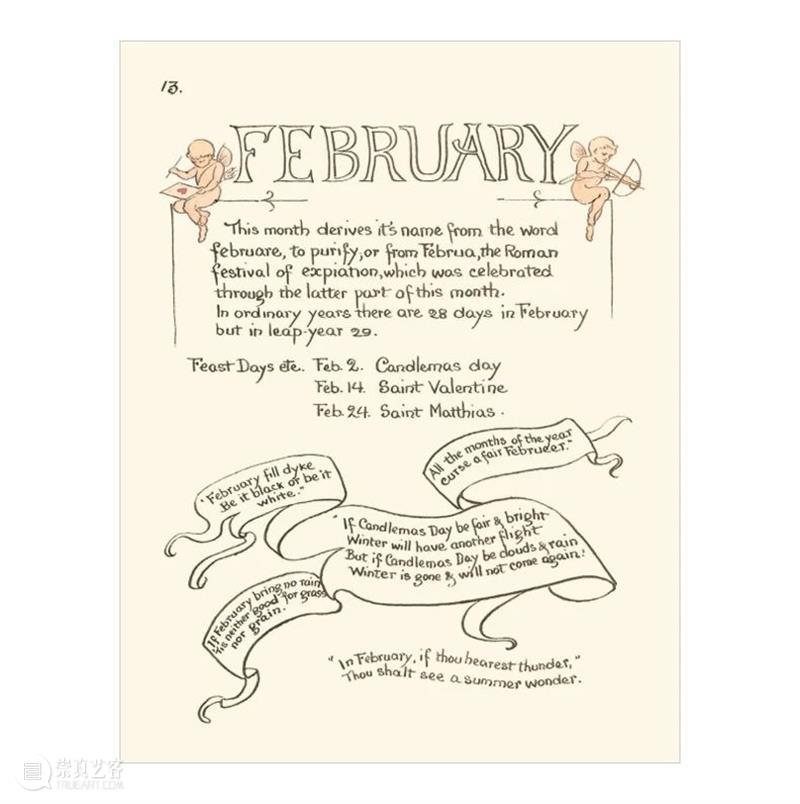 13.
FEBRUARY
This month derives it's name from the word
februare, to purify, or from Februa, the Roman
festival of expiation, which was celebrated
through the latter part of this month.
In ordinary years there are 28 days in February
but in leap-year 29.
Feast Days etc. Feb. 2. Candlemas day
Feb. 14. Saint Valentine
Feb. 24. Saint Matthias.
"February fill dyke
Be it black or be it
white."
All the months of the year
curse a fair Februeer."
"If Candlemas Day be fair & bright
Winter will have another flight
But if Candlemas Day be clouds & rain
Winter is gone & will not come again."
"If February bring no rain
'tis neither good for grass
nor grain."
"In February, if thou hearest thunder,"
Thou shalt see a summer wonder.
崇真艺客
TRUEART.COM